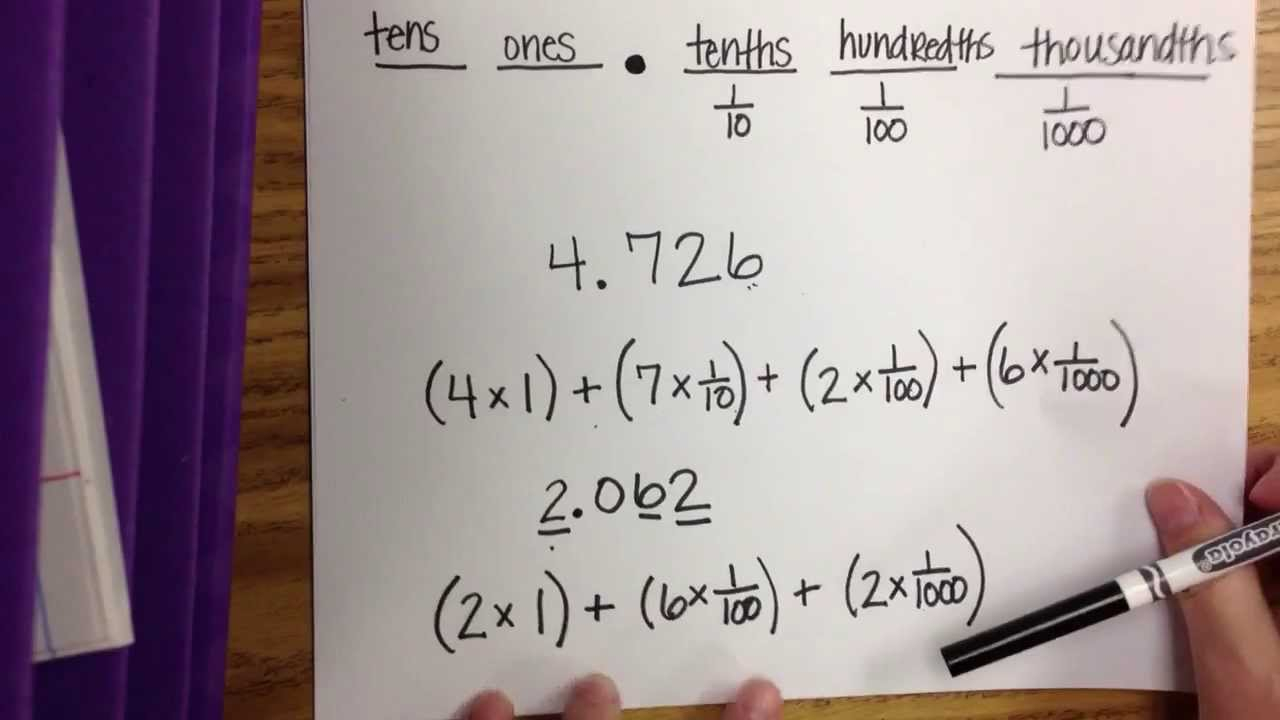 tens ones . tenths hundredths thousandths
1/10 1/100 1/1000
4.726
(4 × 1) + (7 × 1/10) + (2 × 1/100) + (6 × 1/1000)
2.062
(2 × 1) + (6 × 1/100) + (2 × 1/1000)
rayola